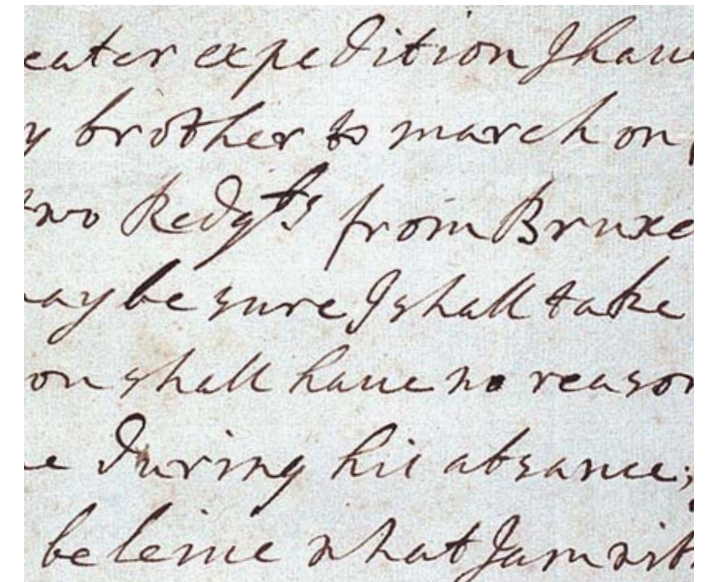 eater expedition I haue
y brother to march on
two Redgts from Bruxe
ay be sure I shall take
ou shall haue no reason
e during his absance;
beleiue what I am with